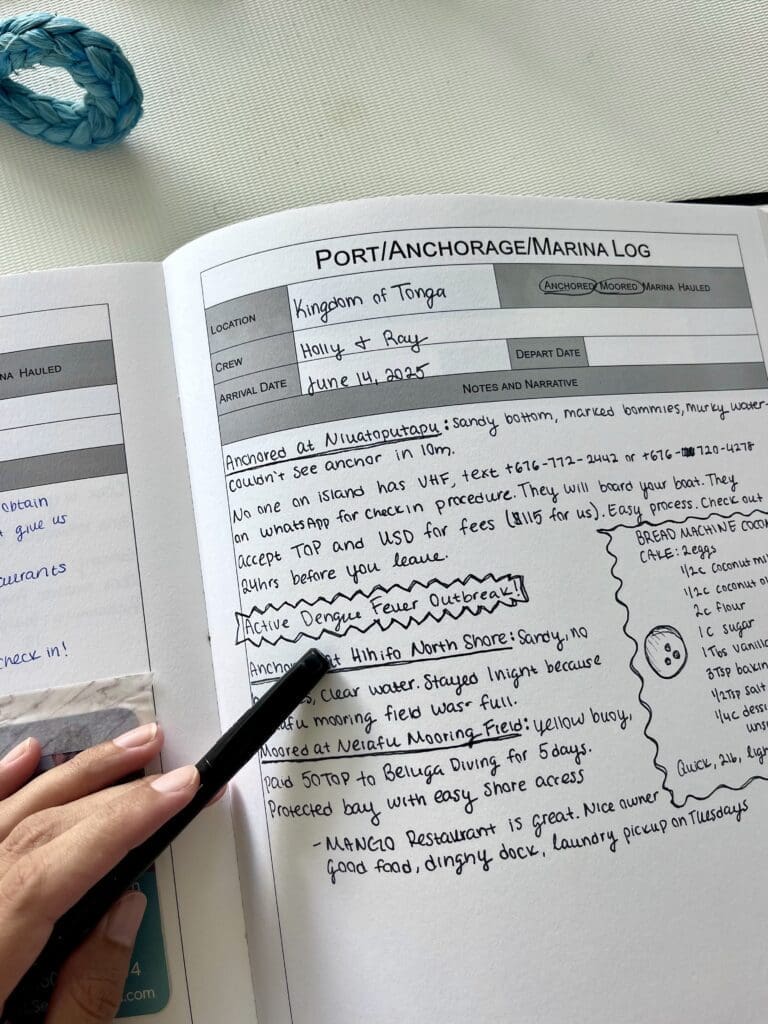 PORT/ANCHORAGE/MARINA LOG
LOCATION
Kingdom of Tonga
ANCHORED MOORED MARINA HAULED
CREW
Holly & Ray
ARRIVAL DATE
June 14, 2025
DEPART DATE
NOTES AND NARRATIVE
Anchored at Niuatoputapu: Sandy bottom, marked bommies, murky water-
couldn't see anchor in 10m.
No one on island has VHF, text +676-772-2442 or +676-720-4278
on WhatsApp for check in procedure. They will board your boat. They
accept TOP and USD for fees ($115 for us). Easy process. Check out
24hrs before you leave.
Active Dengue Fever Outbreak!
at Hihifo North Shore: Sandy, no
clear water. Stayed 1 night because
mooring field was full.
Moored at Neiafu Mooring Field: yellow buoy,
paid 50TOP to Beluga Diving for 5 days.
Protected bay with easy shore access
- MANGO Restaurant is great. Nice owner
good food, dinghy dock, laundry pickup on Tuesdays
BREAD MACHINE
CAKE: 2 eggs
1/2c coconut
1/2c coconut
2c flour
1c sugar
1 Tbs
3Tsp
1/2Tsp salt
1/4c
Quick, 2lb,
NA HAULED
obtain
give us
check in!
4
.com